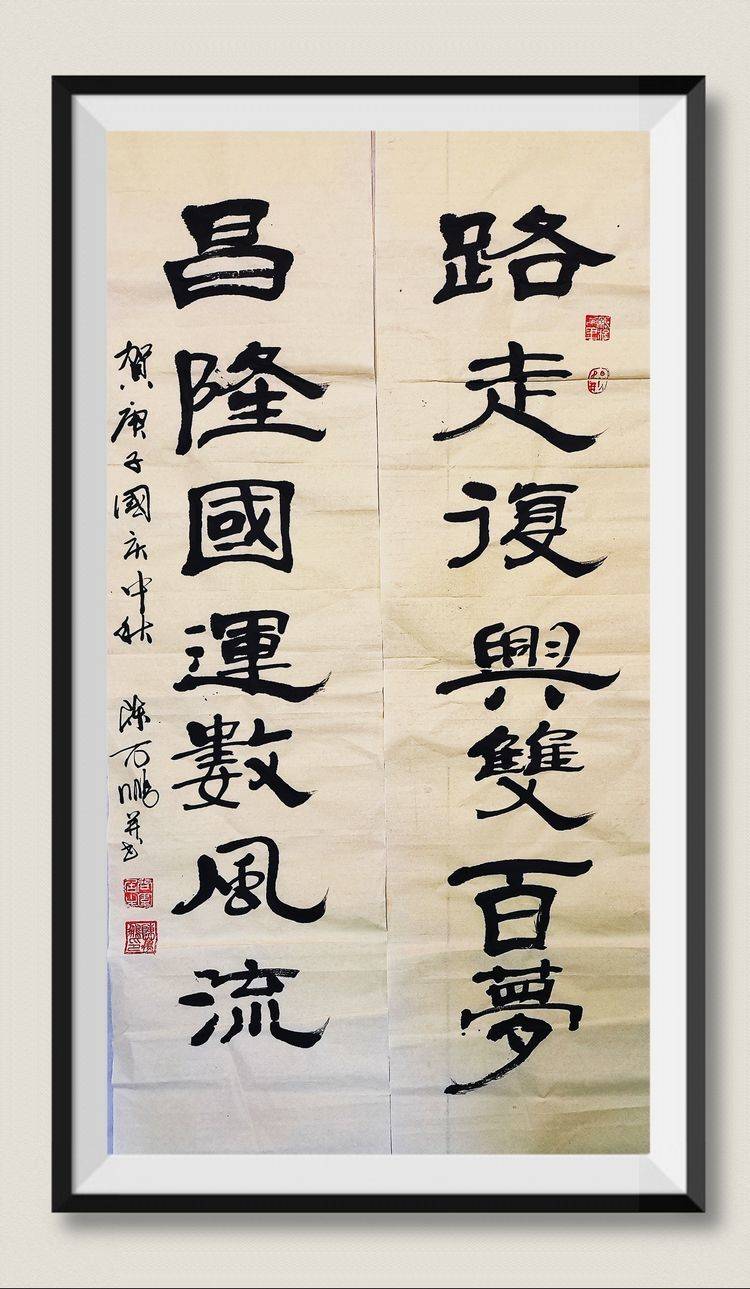 路走復興雙百夢
昌隆國運數風流
賀庚子國庆中秋
陈万鹏並书